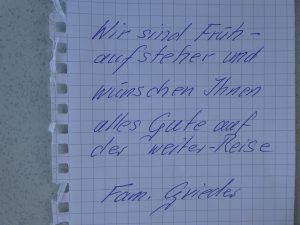 Wir sind Früh-
aufsteher und
wünschen Ihnen
alles Gute auf
der weiter-Reise
Fam. Grieder